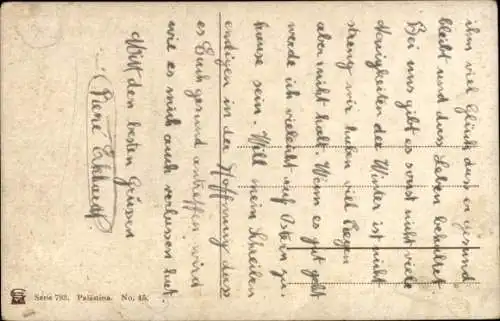 ihm viel Glück dass er gesund
bleibt und dass Leben behaltet.
Bei uns gibt es sonst nicht viele
Neuigkeiten der Winter ist nicht
streng wir haben viel Regen
aber nicht kalt. Wenn es gut geht
werde ich vieleicht auf Ostern zu
hause sein. Will mein Schreiben
endigen in der Hoffnung dass
es Euch gesund antreffen wird
wie es mich auch verlassen tut.
Mitt den besten Grüssen
Eckhardt
Serie 793. Palästina. No. 45.